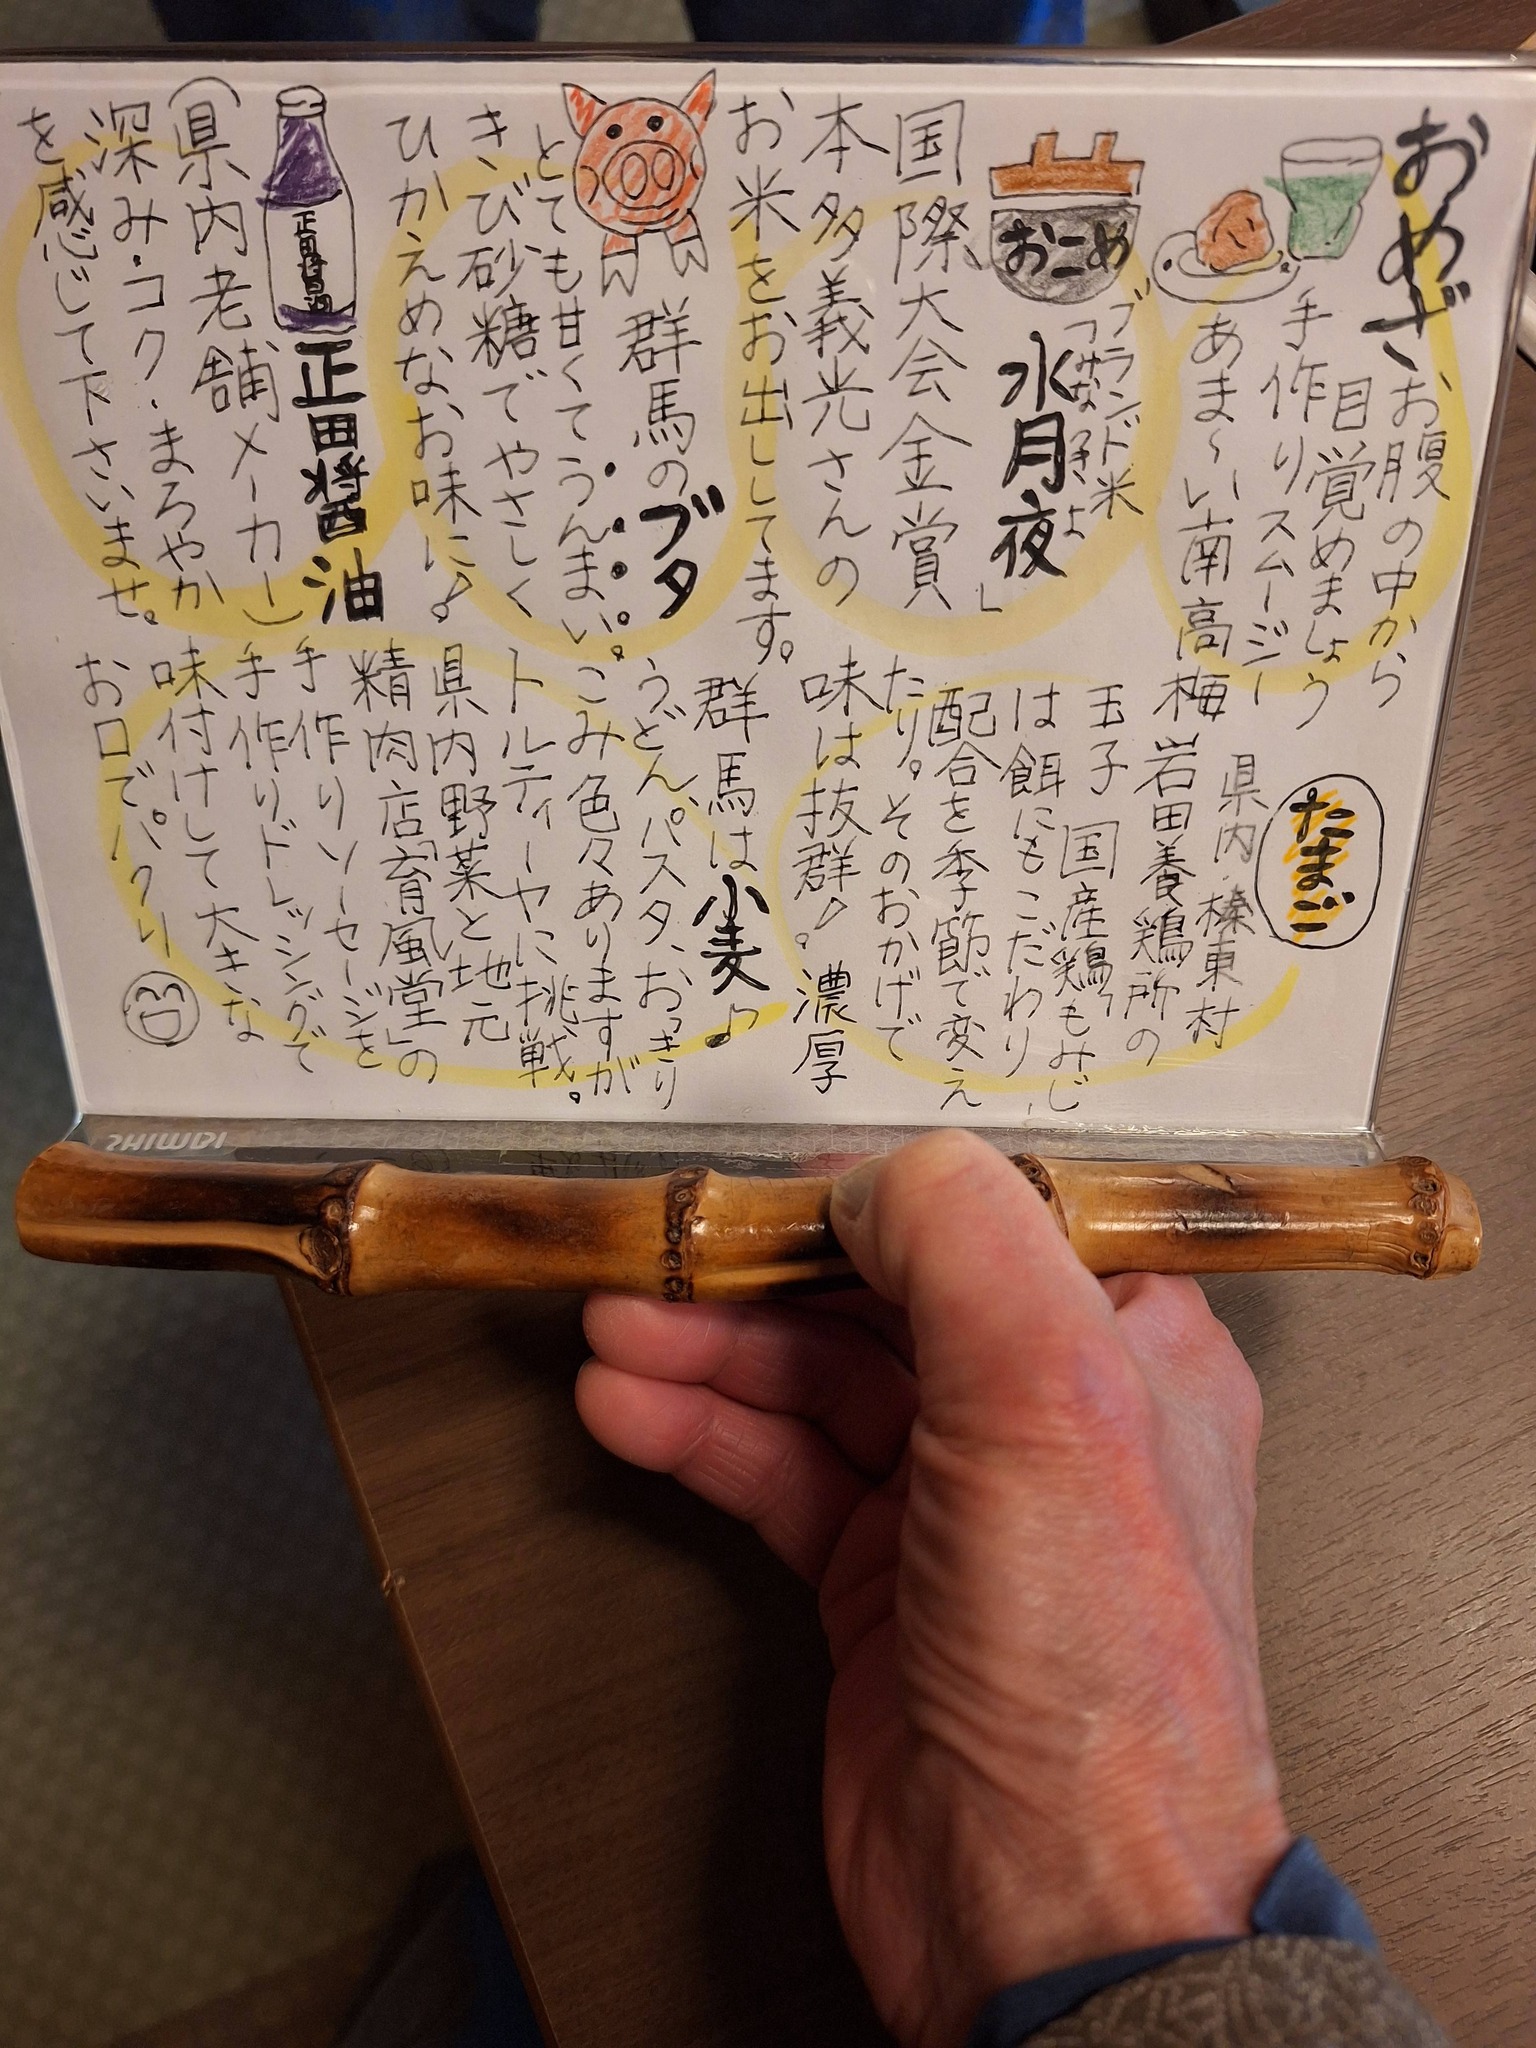 おめざ
お腹の中から
目覚めましょう
手作りスムージー
あま〜い南高梅
おこめ
ブランド米
水月夜」
国際大会金賞
本多義光さんの
お米をお出ししてます。
群馬のブタ
とても甘くてうんまい。
きび砂糖でやさしく
ひかえめなお味に♪
正田醤油
正田醤油
(県内老舗メーカー)
深み・コク・まろやか
を感じて下さいませ。
たまご
県内・榛東村
岩田養鶏所の
玉子 国産鶏もみじ
は餌にもこだわり、
配合を季節で変え
たり。そのおかげで
味は抜群♪。濃厚
群馬は小麦♪
うどん、パスタ、おっきり
こみ色々ありますが
トルティーヤに挑戦。
県内野菜と地元
精肉店「育風堂」の
手作りソーセージを
手作りドレッシングで
味付けして大きな
お口でパクリ